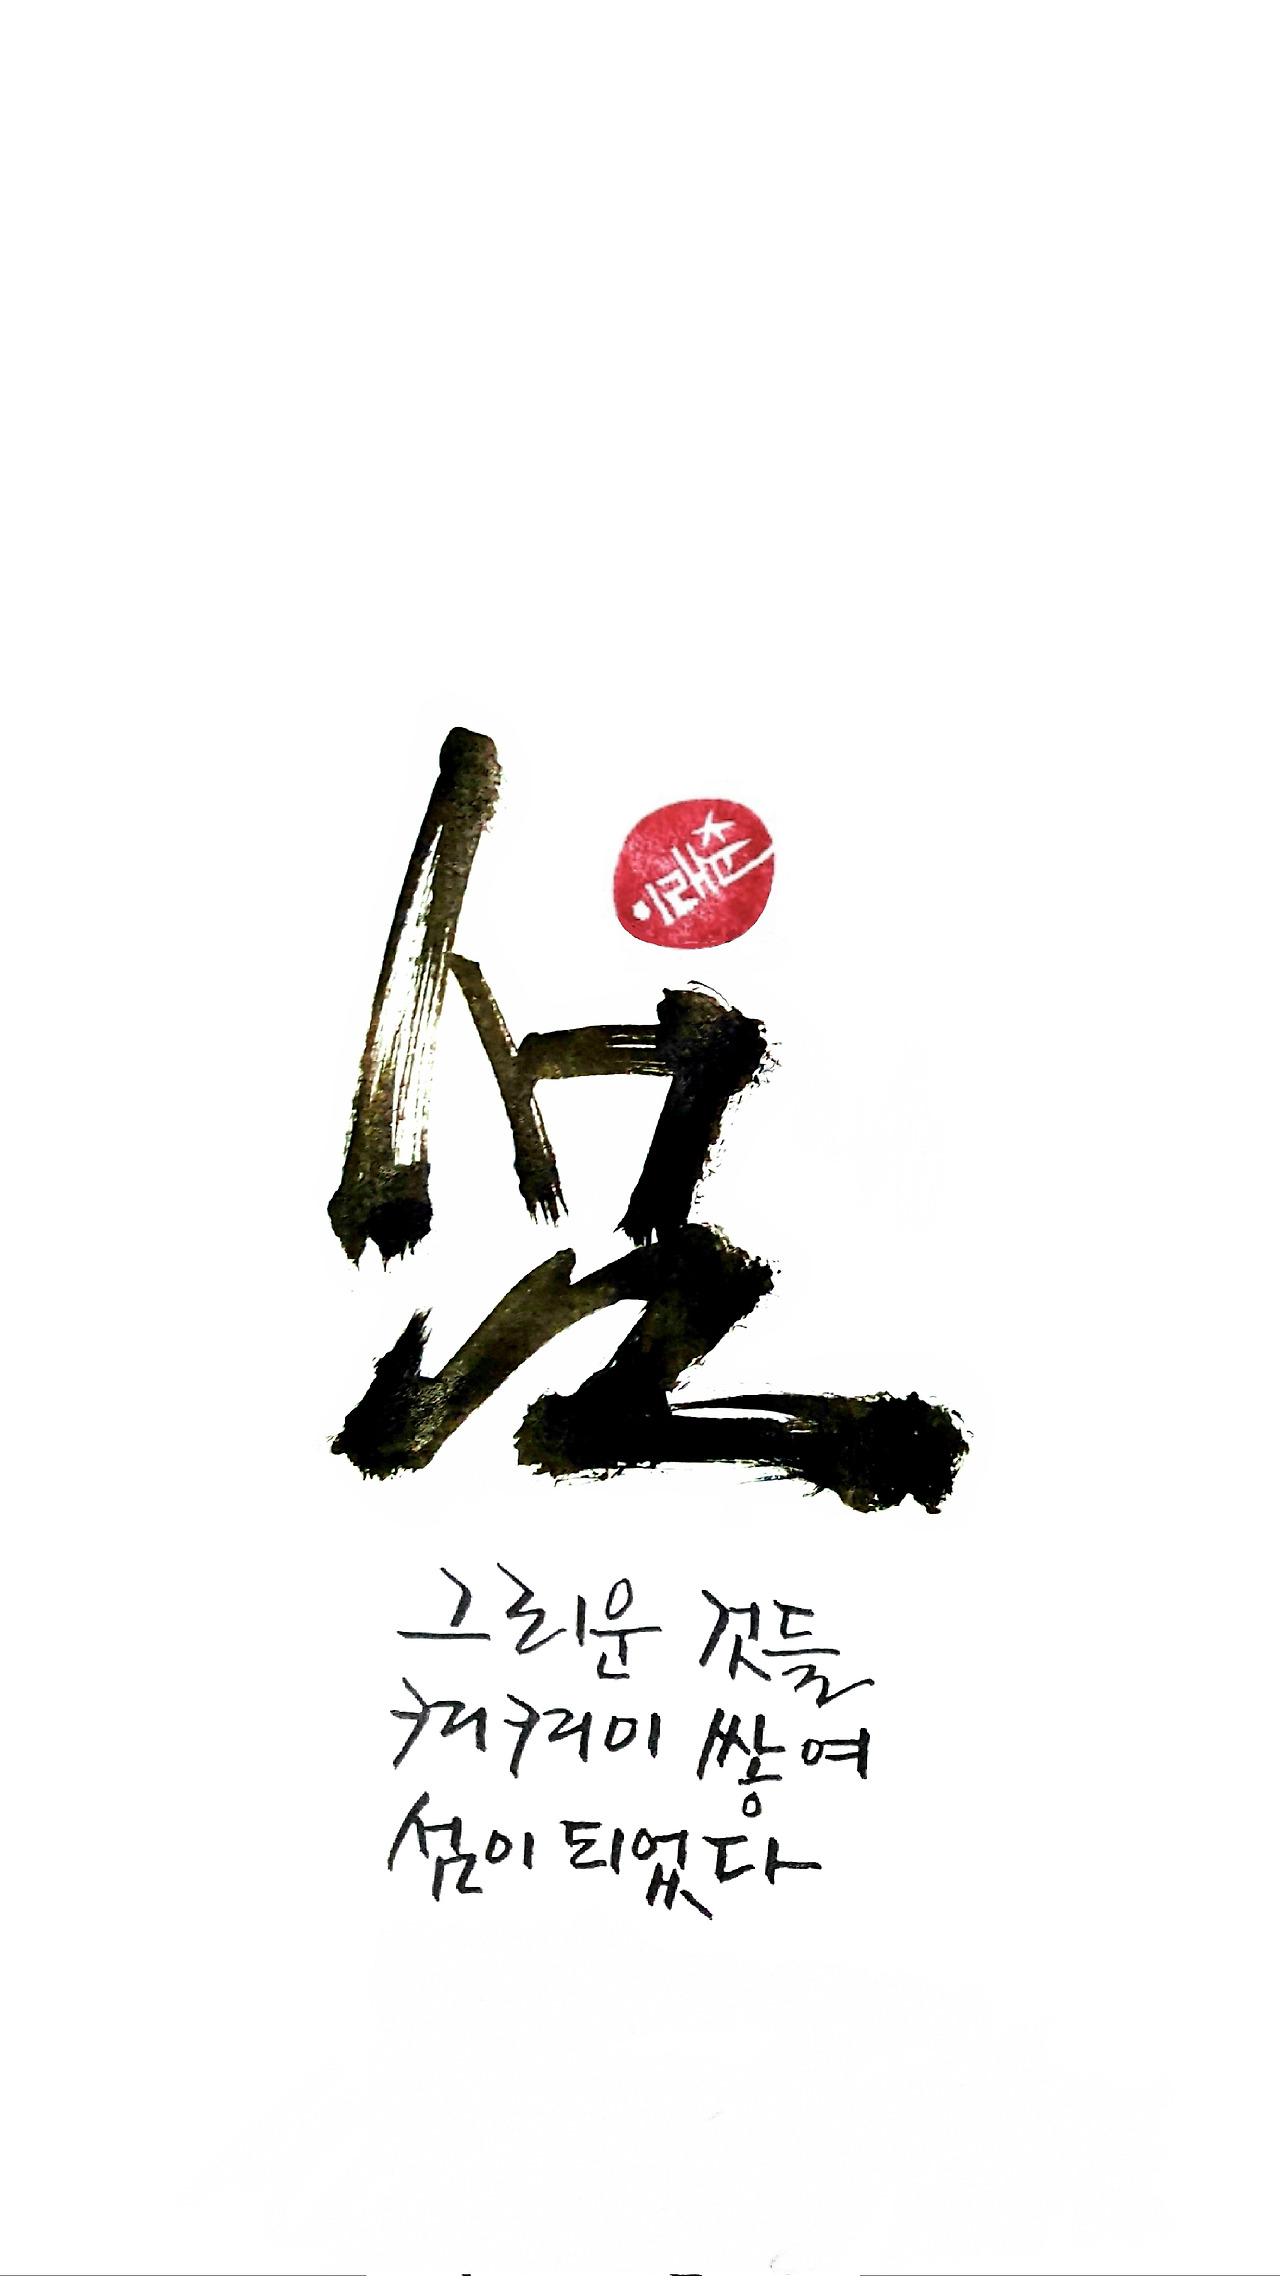 섬
이래춘
그리운 것들
켜켜이 쌓여
섬이 되었다